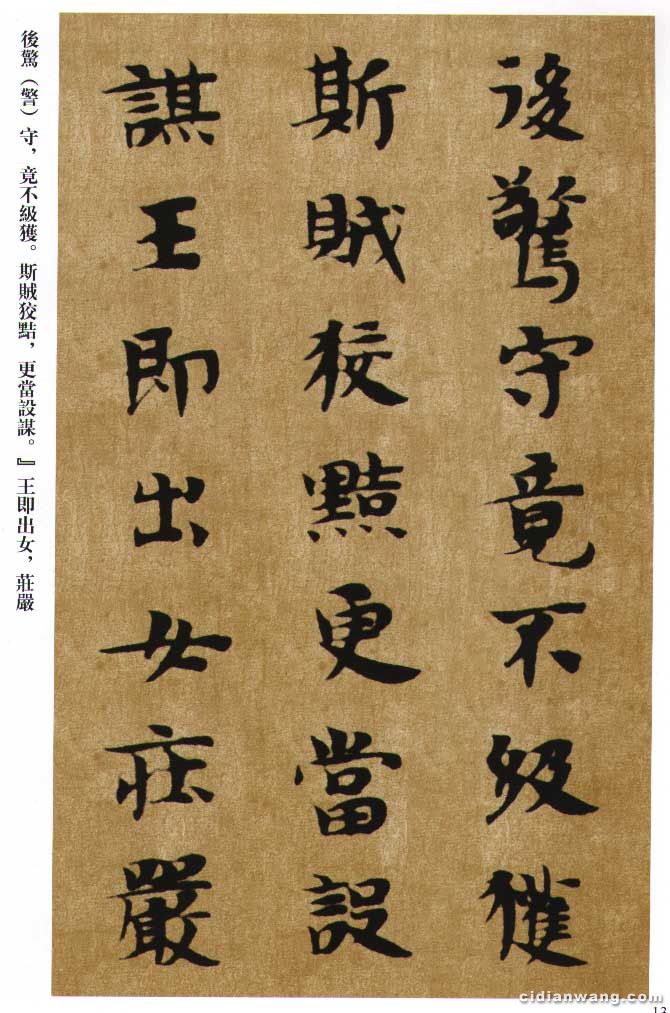 後驚守竟不級獲
斯賊狡黠更當設
謀王即出女莊嚴
後驚（警）守，竟不級獲。斯賊狡黠，更當設謀。』王即出女，莊嚴
cidianwang.com
13